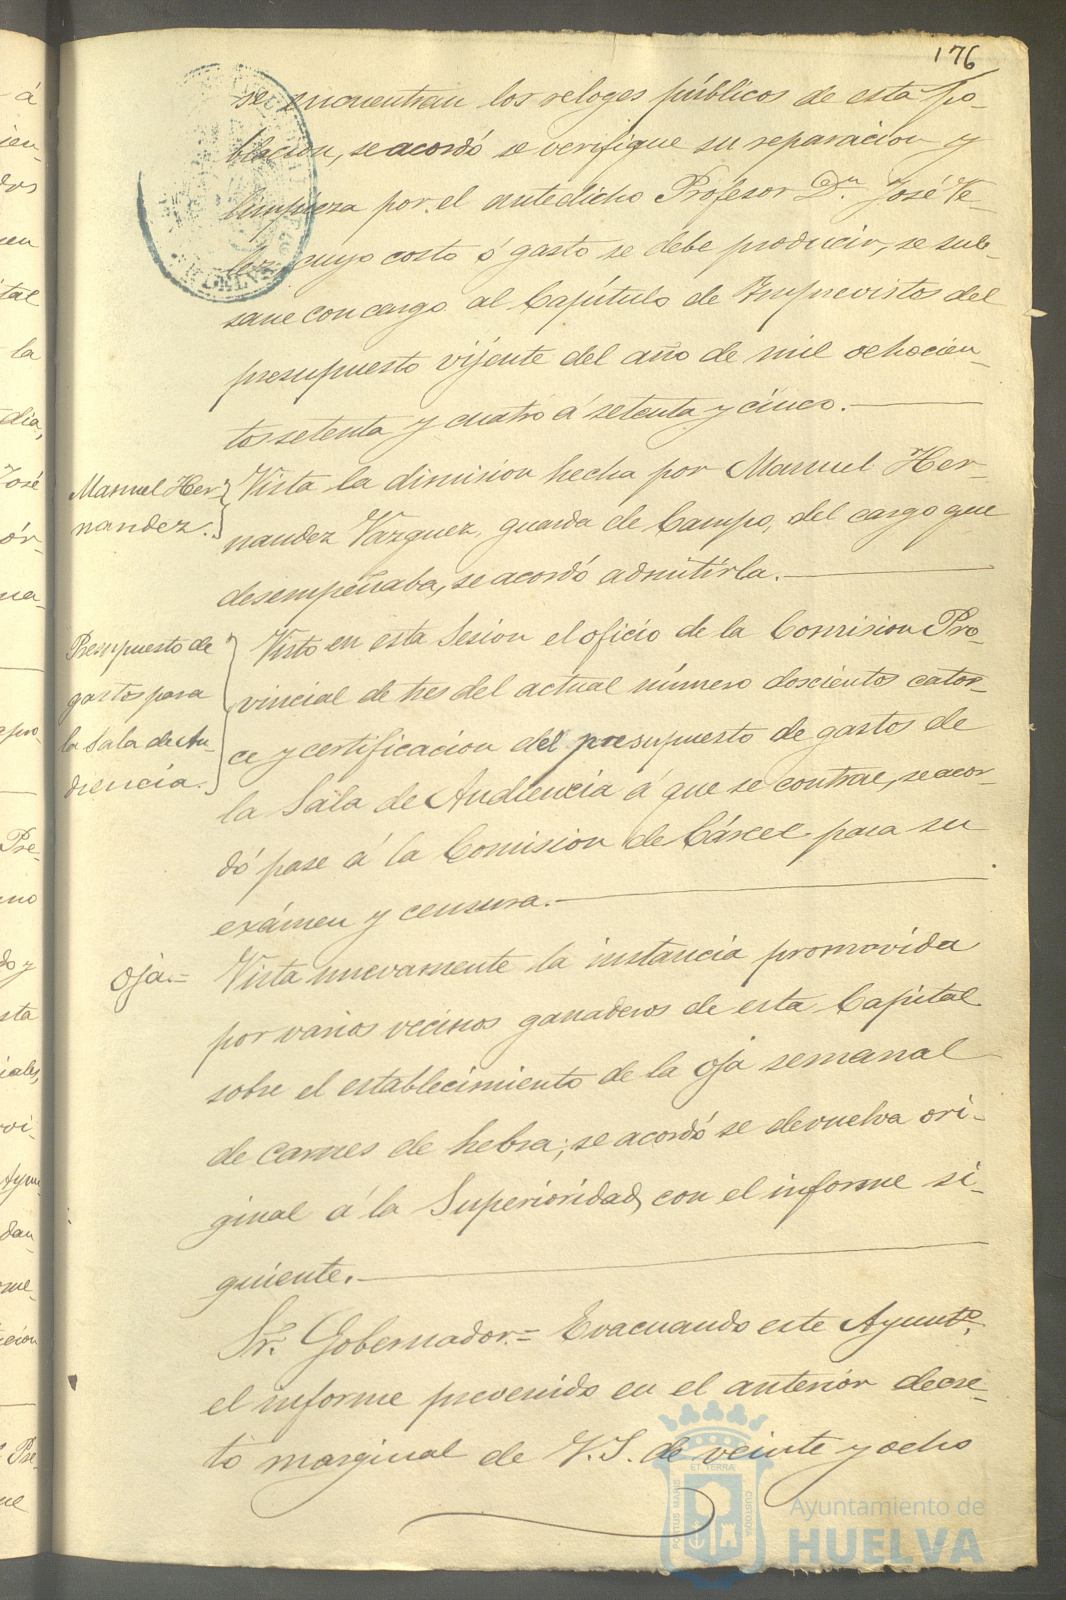 176
se encuentran los reloges públicos de esta po-
blacion, se acordó se verifique su reparacion y
limpieza por el antedicho Profesor D.n José Ve-
lez cuyo costo ó gasto se debe producir, se sub-
sane con cargo al Capítulo de Imprevistos del
presupuesto vijente del año de mil ochocien-
tos setenta y cuatro á setenta y cinco.
Manuel Her-
nandez.
Vista la dimision hecha por Manuel Her-
nandez Vazquez, guarda de Campo, del cargo que
desempeñaba, se acordó admitirla.
Presupuesto de
gastos para
la Sala de Au-
diencia.
Visto en esta Sesion el oficio de la Comision Pro-
vincial de tres del actual número doscientos cator-
ce y certificacion del presupuesto de gastos de
la Sala de Audiencia á que se contrae, se acor-
dó pase á la Comision de Cárcel para su
exámen y censura.
Oja.=
Vista nuevamente la instancia promovida
por varios vecinos ganaderos de esta Capital
sobre el establecimiento de la oja semanal
de carnes de hebra; se acordó se devuelva ori-
ginal á la Superioridad, con el informe si-
guiente.
Sr. Gobernador.= Evacuando este Ayunto.
el informe prevenido en el anterior decre-
to marginal de V.S. de veinte y ocho
PORTUS MARIS ET TERRAE CUSTODIA
Ayuntamiento de
HUELVA